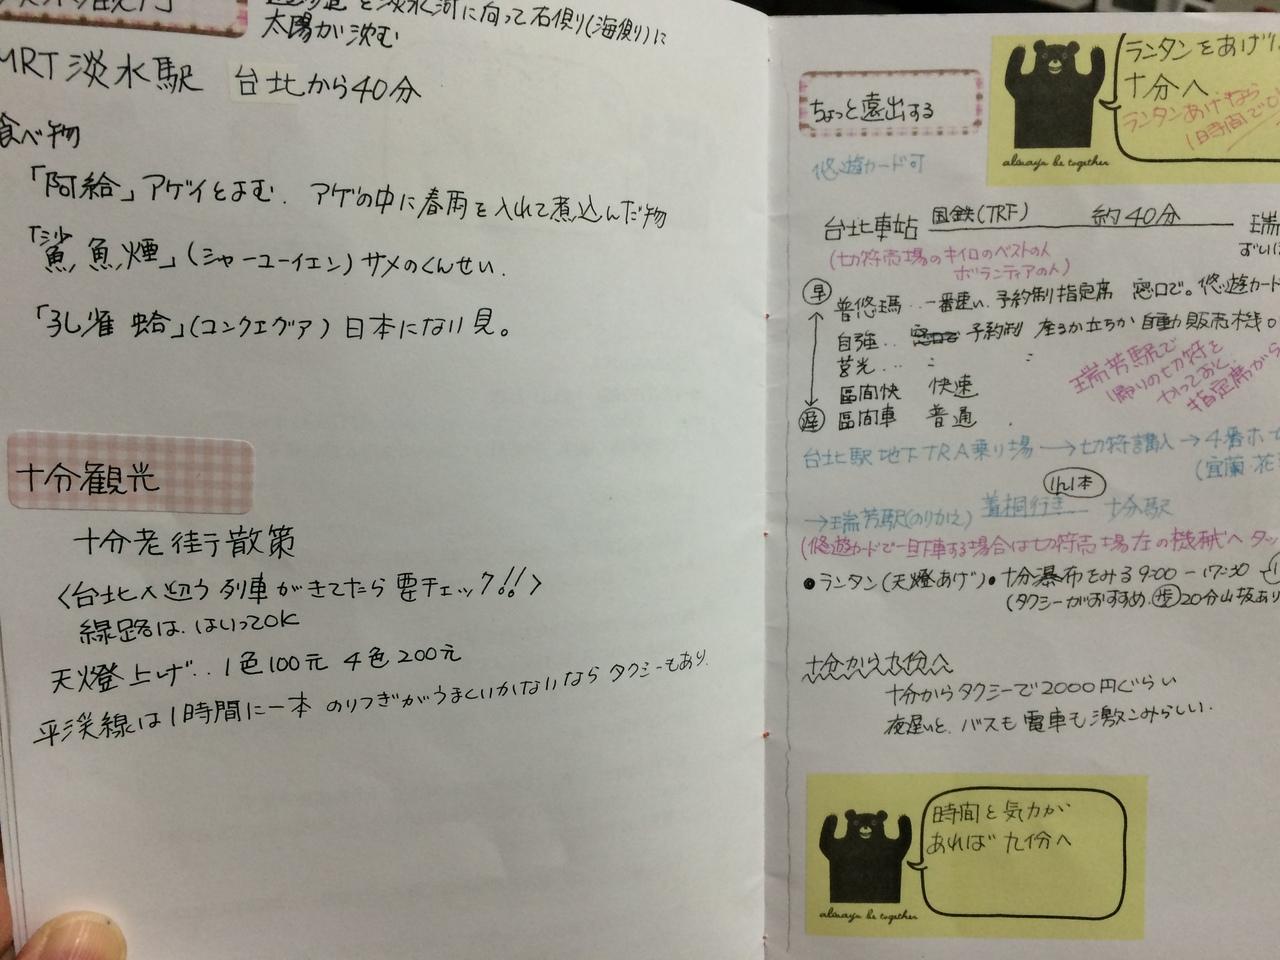 を淡水河に向って右側り(海側り)に
太陽が沈む
MRT 淡水駅 台北から40分
食べ物
「阿給」アゲイとよむ. アゲの中に春雨を入れて煮込んだ物
「鯊魚煙」(シャーユーイエン) サメのくんせい.
「孔雀蛤」(コンクエグア) 日本にない貝。
十分観光
十分老街散策
〈台北へ迎う列車がきてたら要チェック!!〉
線路は、はいってOK
天燈上げ‥ 1色100元 4色200元
平渓線は1時間に一本 のりつぎがうまくいかないなら タクシーもあり.
ランタンをあげに
十分へ
ランタンあげなら
1時間で
always be together
ちょっと遠出する
悠遊カード可
台北車站 国鉄(TRF) 約40分 瑞
(切符売場のキイロのベストの人
ボランティアの人)
早
普悠瑪‥ 一番速い. 予約制指定席 窓口で。悠遊カード
自強‥ 予約制 座るか立ちか 自動販売機
莒光‥ 〃 〃
區間快 快速
遅 區間車 普通
瑞芳駅で
帰りの切符を
かっておく
指定席が
台北駅 地下TRA乗り場 → 切符購入 → 4番ホ
(宜蘭・花
1h1本
→瑞芳駅(のりかえ) 菁桐行き 十分駅
(悠遊カードで一旦下車する場合は切符売場左の機械へタッ
●ランタン(天燈あげ) ●十分瀑布をみる 9:00 − 17:30
(タクシーがおすすめ. 歩20分山坂あり
十分から九份へ
十分からタクシーで2000円ぐらい
夜遅いと、バスも電車も激コみらしい.
時間と気力が
あれば九份へ
always be together